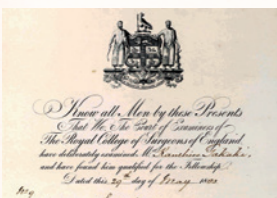 Know all Men by these Presents
That We, The Court of Examiners of
The Royal College of Surgeons of England
have deliberately examined Mr Kanehiro Takaki
and have found him qualified for the Fellowship.
Dated this 29th day of May 1880